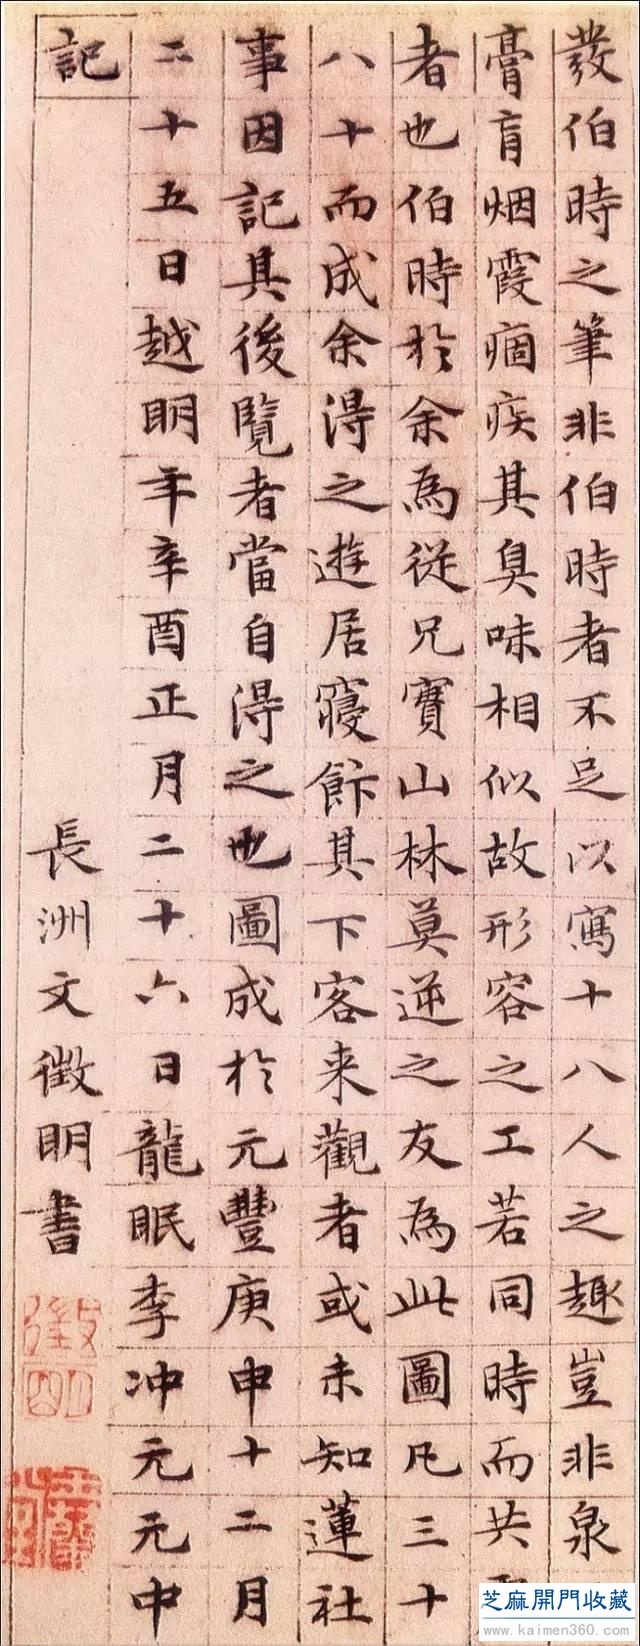 發伯時之筆非伯時者不足以寫十八人之趣豈非泉
膏肓烟霞痼疾其臭味相似故形容之工若同時而共
者也伯時於余為從兄實山林莫逆之友為此圖凡三十
八十而成余得之遊居寢飰其下客来觀者或未知蓮社
事因記其後覽者當自得之也圖成於元豐庚申十二月
二十五日越明年辛酉正月二十六日龍眠李冲元元中
記
長洲文徵明書
徵明
芝麻開門收藏
www.kaimen360.com